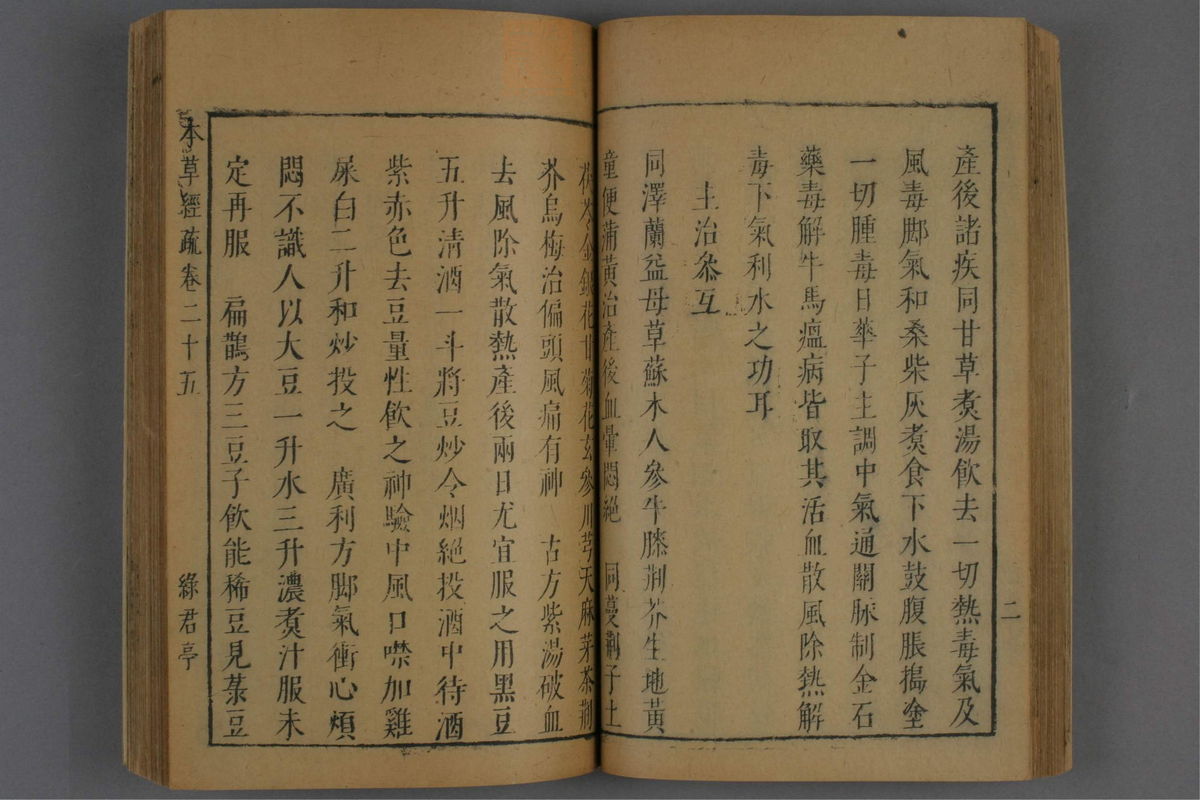 產後諸疾同甘草煑湯飲去一切熱毒氣及
風毒脚氣和桑柴灰煑食下水鼓腹脹搗塗
一切腫毒日華子主調中氣通關脉制金石
藥毒解牛馬瘟病皆取其活血散風除熱解
毒下氣利水之功耳
主治叅互
同澤蘭益母草蘇木人參牛膝荆芥生地黃
童便蒲黃治產後血暈悶絕 同蔓荆子土
茯苓金銀花甘菊花玄參川芎天麻芽茶荆
芥烏梅治偏頭風痛有神 古方紫湯破血
去風除氣散熱產後兩日尤宜服之用黑豆
五升清酒一斗將豆炒令烟絕投酒中待酒
紫赤色去豆量性飲之神驗中風口噤加雞
屎白二升和炒投之 廣利方脚氣衝心煩
悶不識人以大豆一升水三升濃煑汁服未
定再服 扁鵲方三豆子飲能稀豆見菉豆
本草經疏卷二十五 綠君亭
二